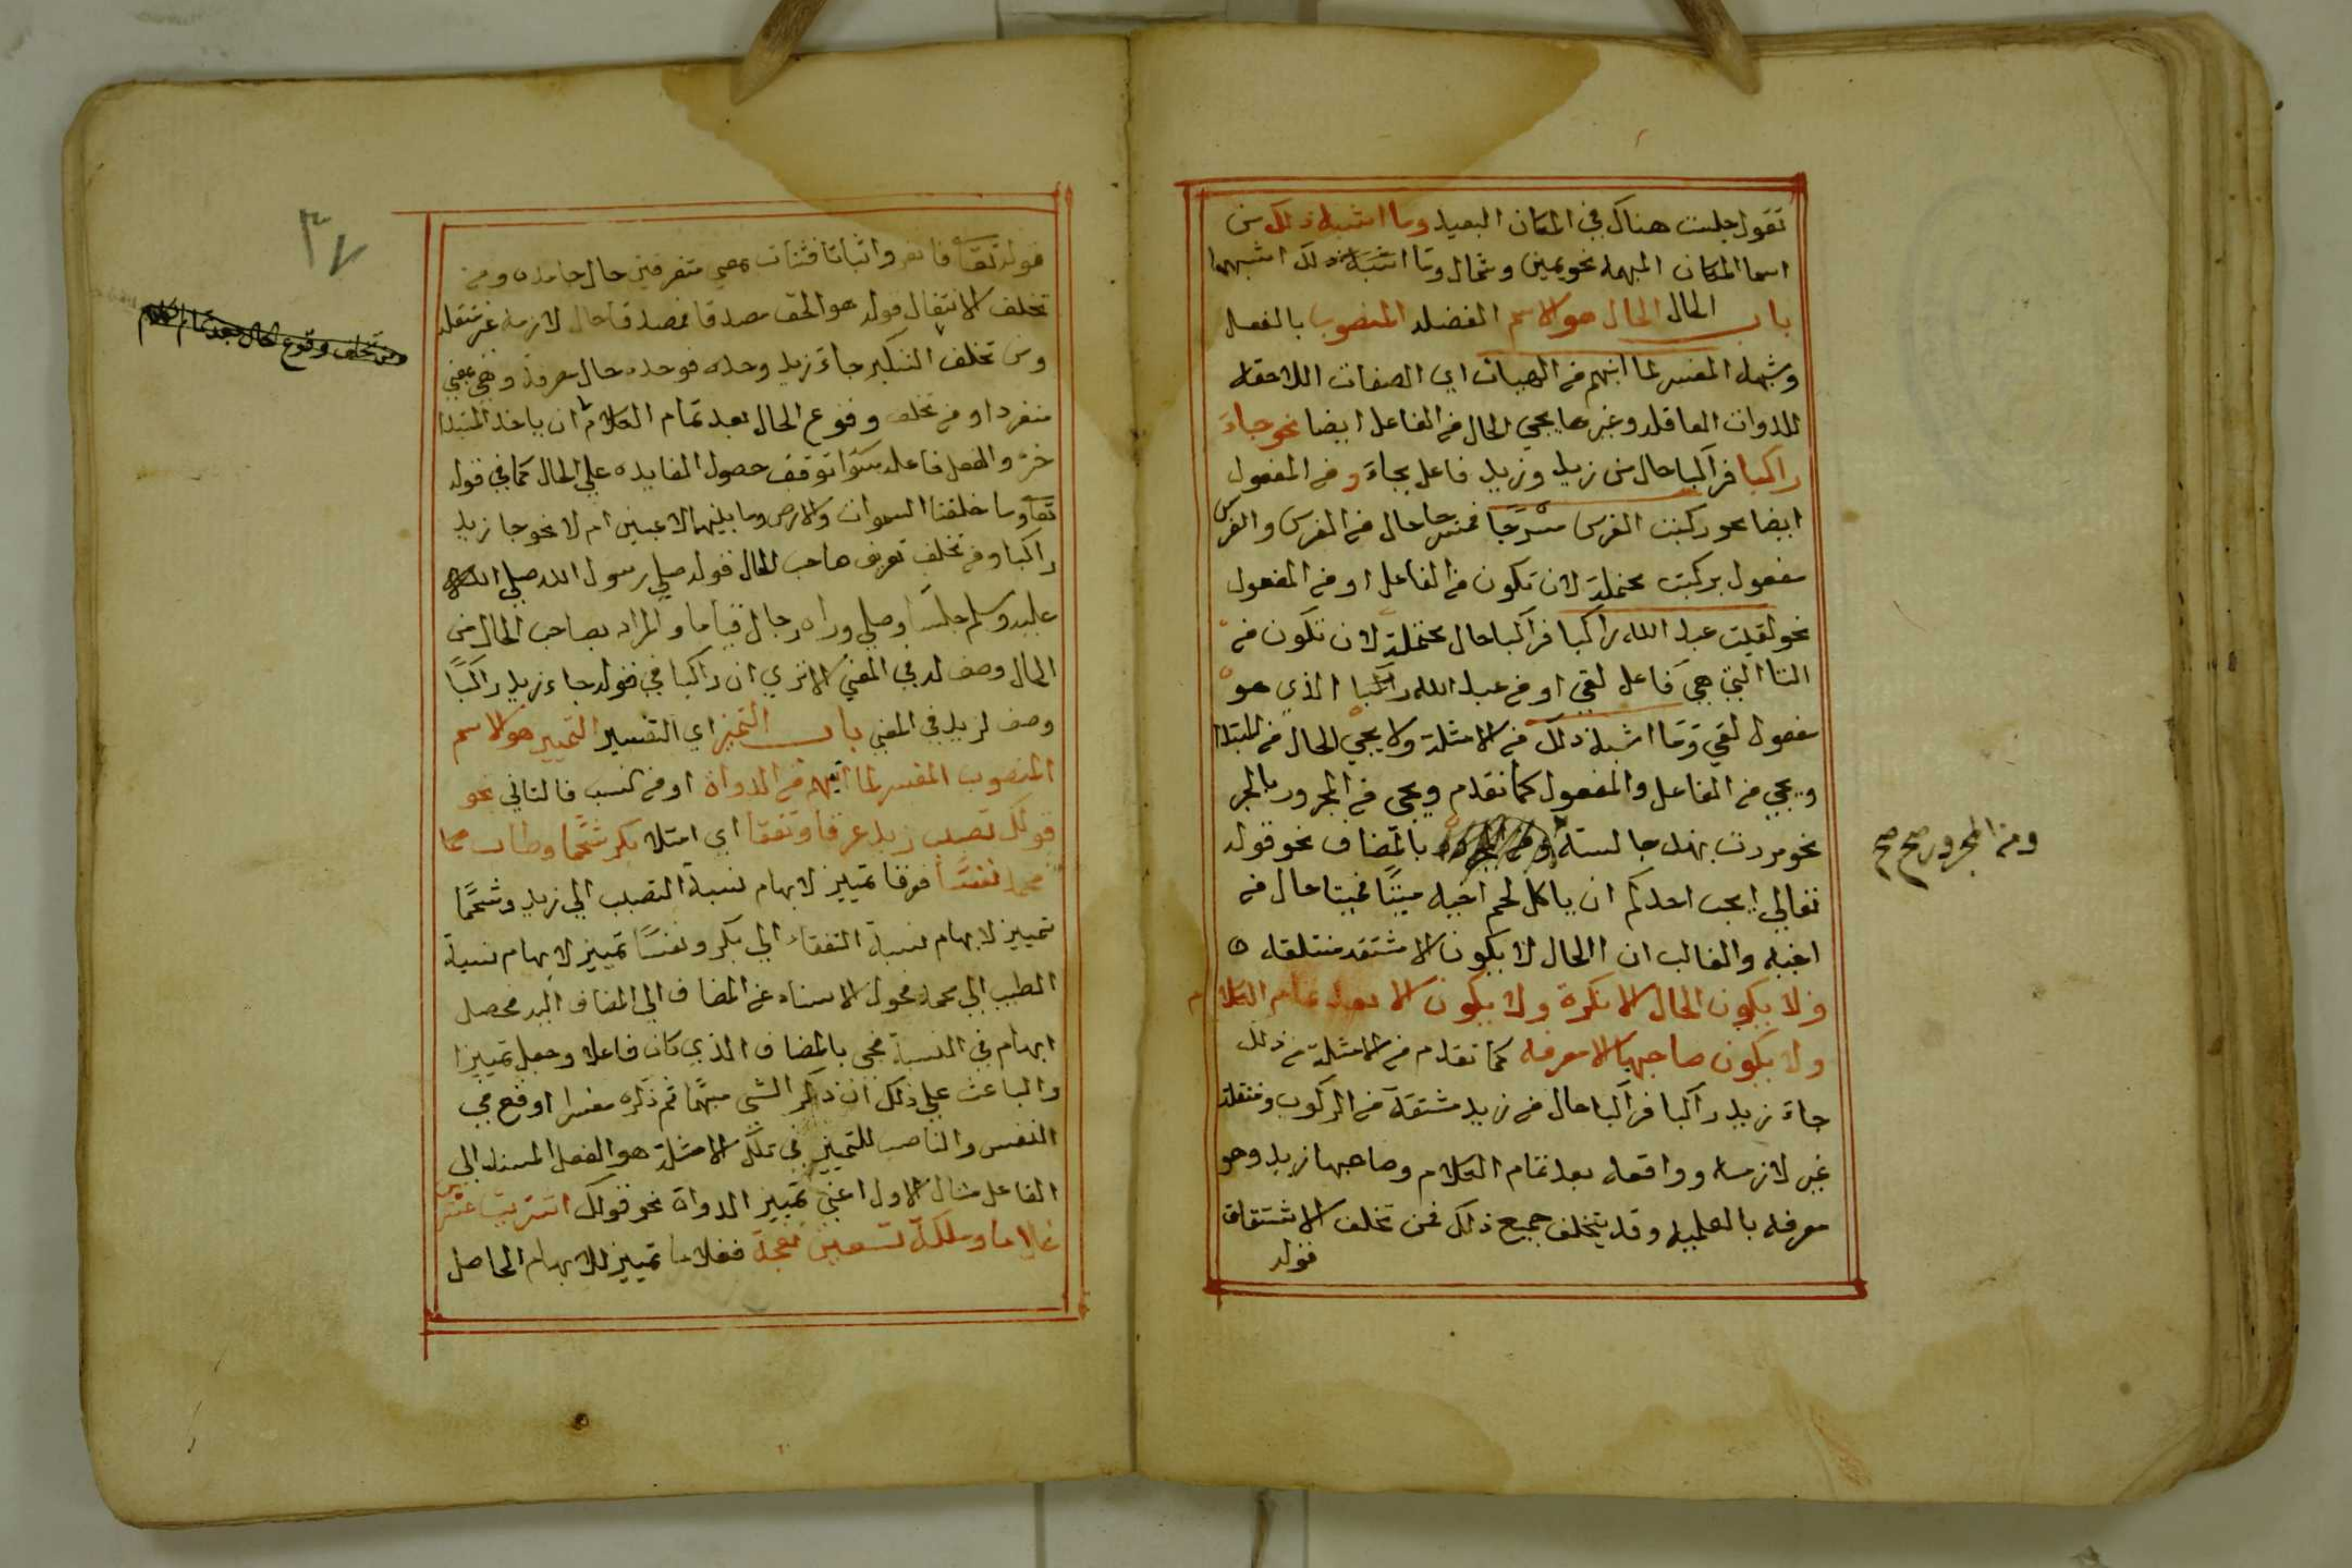 تقول جلست هناك في المكان البعيد وما اشبه ذلك من
اسما المكان المبهمه نحو يمين وشمال وما اشبه ذلك اشبههما
باب الحال الحال هو الاسم الفضله المنصوب بالفعل
وشبهه المفسر لما انبهم من الهيات اي الصفات اللاحقه
للذوات العاقله وغيرها يجي الحال من الفاعل ايضا نحو جاء
راكبا فراكبا حال من زيد وزيد فاعل بجاء ومن المفعول
ايضا نحو ركبت الفرس مسرجا فمسرجا حال من الفرس والفرس
مفعول بركبت محتملة لان تكون من الفاعل او من المفعول
نحو لقيت عبد الله راكبا فراكبا حال محتملة لان تكون من
التا التي هي فاعل لقي او من عبد الله راكبا الذي هو
مفعول لقي وما اشبه ذلك من الامثلة ولا يجي الحال من المبتدا
ويجي من الفاعل والمفعول كما تقدم ويجي من المجرور بالحر
نحو مررت بهند جالسة بالمضاف نحو قوله
ومن المجرور صح صح
تعالي ايحب احدكم ان ياكل لحم اخيه ميتا فميتا حال من
اخيه والغالب ان الحال لا يكون الا مشتقه منتقله
ولا يكون الحال الا نكرة ولا يكون الا بعد تمام الكلام
ولا يكون صاحبها الا معرفه كما تقدم من الامثلة من ذلك
جاء زيد راكبا فراكبا حال من زيد مشتقة من الركوب ومنتقلة
غير لازمه وواقعه بعد تمام الكلام وصاحبها زيد وهو
معرفه بالعلميه وقد يتخلف جميع ذلك فمن تخلف الاشتقاق
قوله
٣٧
قوله تعا فانفروا ثباتا فثبات بمعني متفرقين حال جامده ومن
تخلف الانتقال قوله هو الحق مصدقا فمصدقا حال لازمه غير منتقله
ومن تخلف التنكير جاء زيد وحده فوحده حال معرفة وهي بمعني
منفردا ومن تخلف وقوع الحال بعد تمام الكلام ان ياخذ المبتدا
ومن تخلف وقوع الحال بعد تمام الكلام
خبره والفعل فاعله سوا توقف حصول الفايده علي الحال كما في قوله
تعا وما خلقنا السموات والارض وما بينهما لاعبين ام لا نحو جا زيد
راكبا ومن تخلف تعريف صاحب الحال قوله صلي رسول الله صلي الله
عليه وسلم جلسا وصلي وراه رجال قياما والمراد بصاحب الحال من
الحال وصف له في المعني الا تري ان راكبا في قوله جاء زيد راكبا
وصف لزيد في المعني باب التميز اي التفسير التمييز هو الاسم
المنصوب المفسر لما انبهم من الذوات او من النسب فالثاني نحو
قولك تصبب زيد عرقا وتفقا اي امتلا بكر شحما وطاب
محمد نفسا فعرقا تمييز لابهام نسبة التصبب الي زيد وشحما
تمييز لابهام نسبة التفقاء الي بكر ونفسا تمييز لابهام نسبة
الطيب الي محمد فحول الاسناد عن المضاف الي المضاف اليه فحصل
ابهام في النسبة فجي بالمضاف الذي كان فاعلا وجعل تمييزا
والباعث علي ذلك ان ذكر الشي مبهما ثم ذكره مفسرا اوقع في
النفس والناصب للتمييز في تلك الامثلة هو الفعل المسند الي
الفاعل مثال الاول اعني تمييز الذوات نحو قولك اشتريت عشرين
غلاما وملكت تسعين نعجة فغلاما تمييز للابهام الحاصل